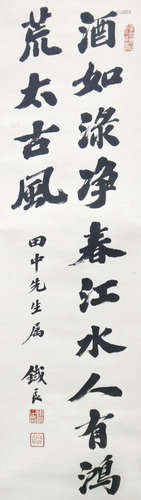 酒如淥净春江水人有鴻
荒太古風
田中先生属
鐵良